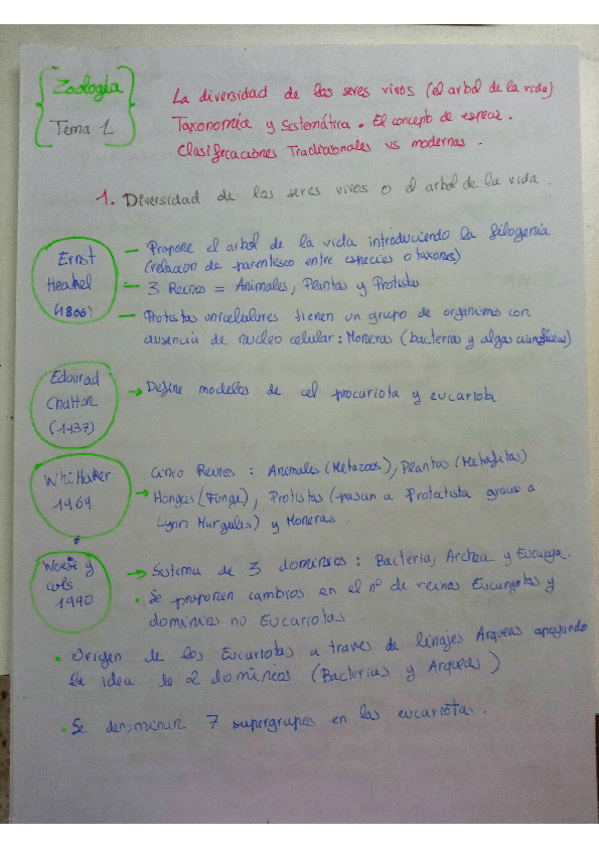 Zoología
Tema 1
La diversidad de los seres vivos (el arbol de la vida)
Taxonomía y Sistemática. El concepto de especie.
Clasificaciones Tradicionales vs modernas.
1. Diversidad de los seres vivos o el arbol de la vida.
Ernst
Heackel
(1866)
— Propone el arbol de la vida introduciendo la filogenia
(relacion de parentesco entre especies o taxones)
— 3 Reinos = Animales, Plantas y Protistas
— Protistas unicelulares tienen un grupo de organismos con
ausencia de nucleo celular: Moneras (bacterias y algas cianofíceas)
Edourad
Chatton
(1937)
→ Define modelos de cel procariota y eucariota
Whittaker
1969
Cinco Reinos : Animales (Metazoos), Plantas (Metafitas)
→ Hongos (Fungi), Protistas (pasan a Protoctista gracias a
Lynn Margulis) y Moneras.
Woese y
cols
1990
→ Sistema de 3 dominios : Bacteria, Archea y Eucarya.
• Se proponen cambios en el nº de reinos Eucariotas y
dominios no Eucariotas.
• Origen de los Eucariotas a traves de linajes Arqueas apoyando
la idea de 2 dominios (Bacterias y Arqueas)
• Se denominan 7 supergrupos en las eucariotas.